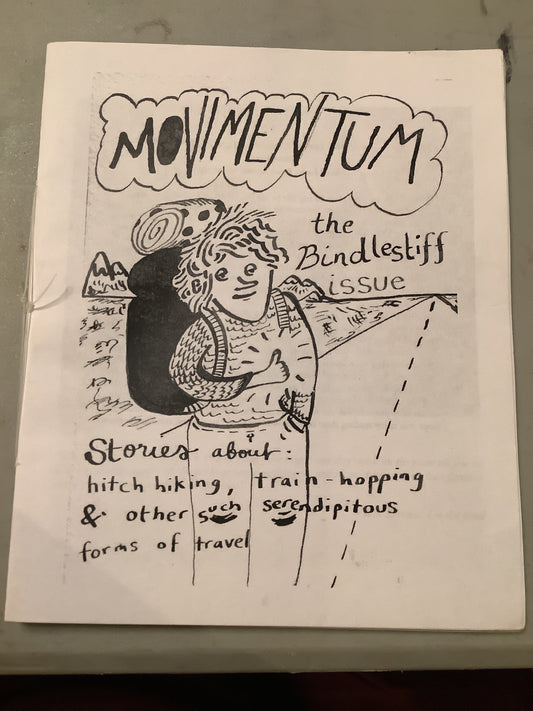 MOVIMENTUM
the
Bindlestiff
issue
Stories about:
hitch hiking, train-hopping
& other such serendipitous
forms of travel